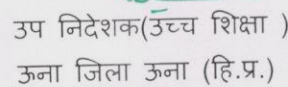 उप निदेशक(उच्च शिक्षा )
ऊना जिला ऊना (हि.प्र.)